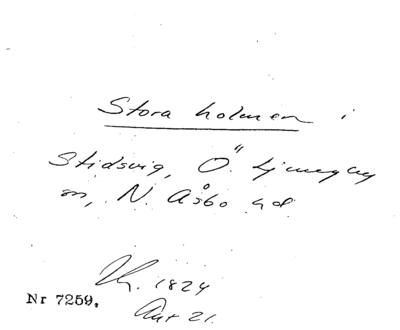 Stora holmen i
Stidsvig, Ö. Ljungby
sn, N. Åsbo hd
1824
Nr 7259.
21.